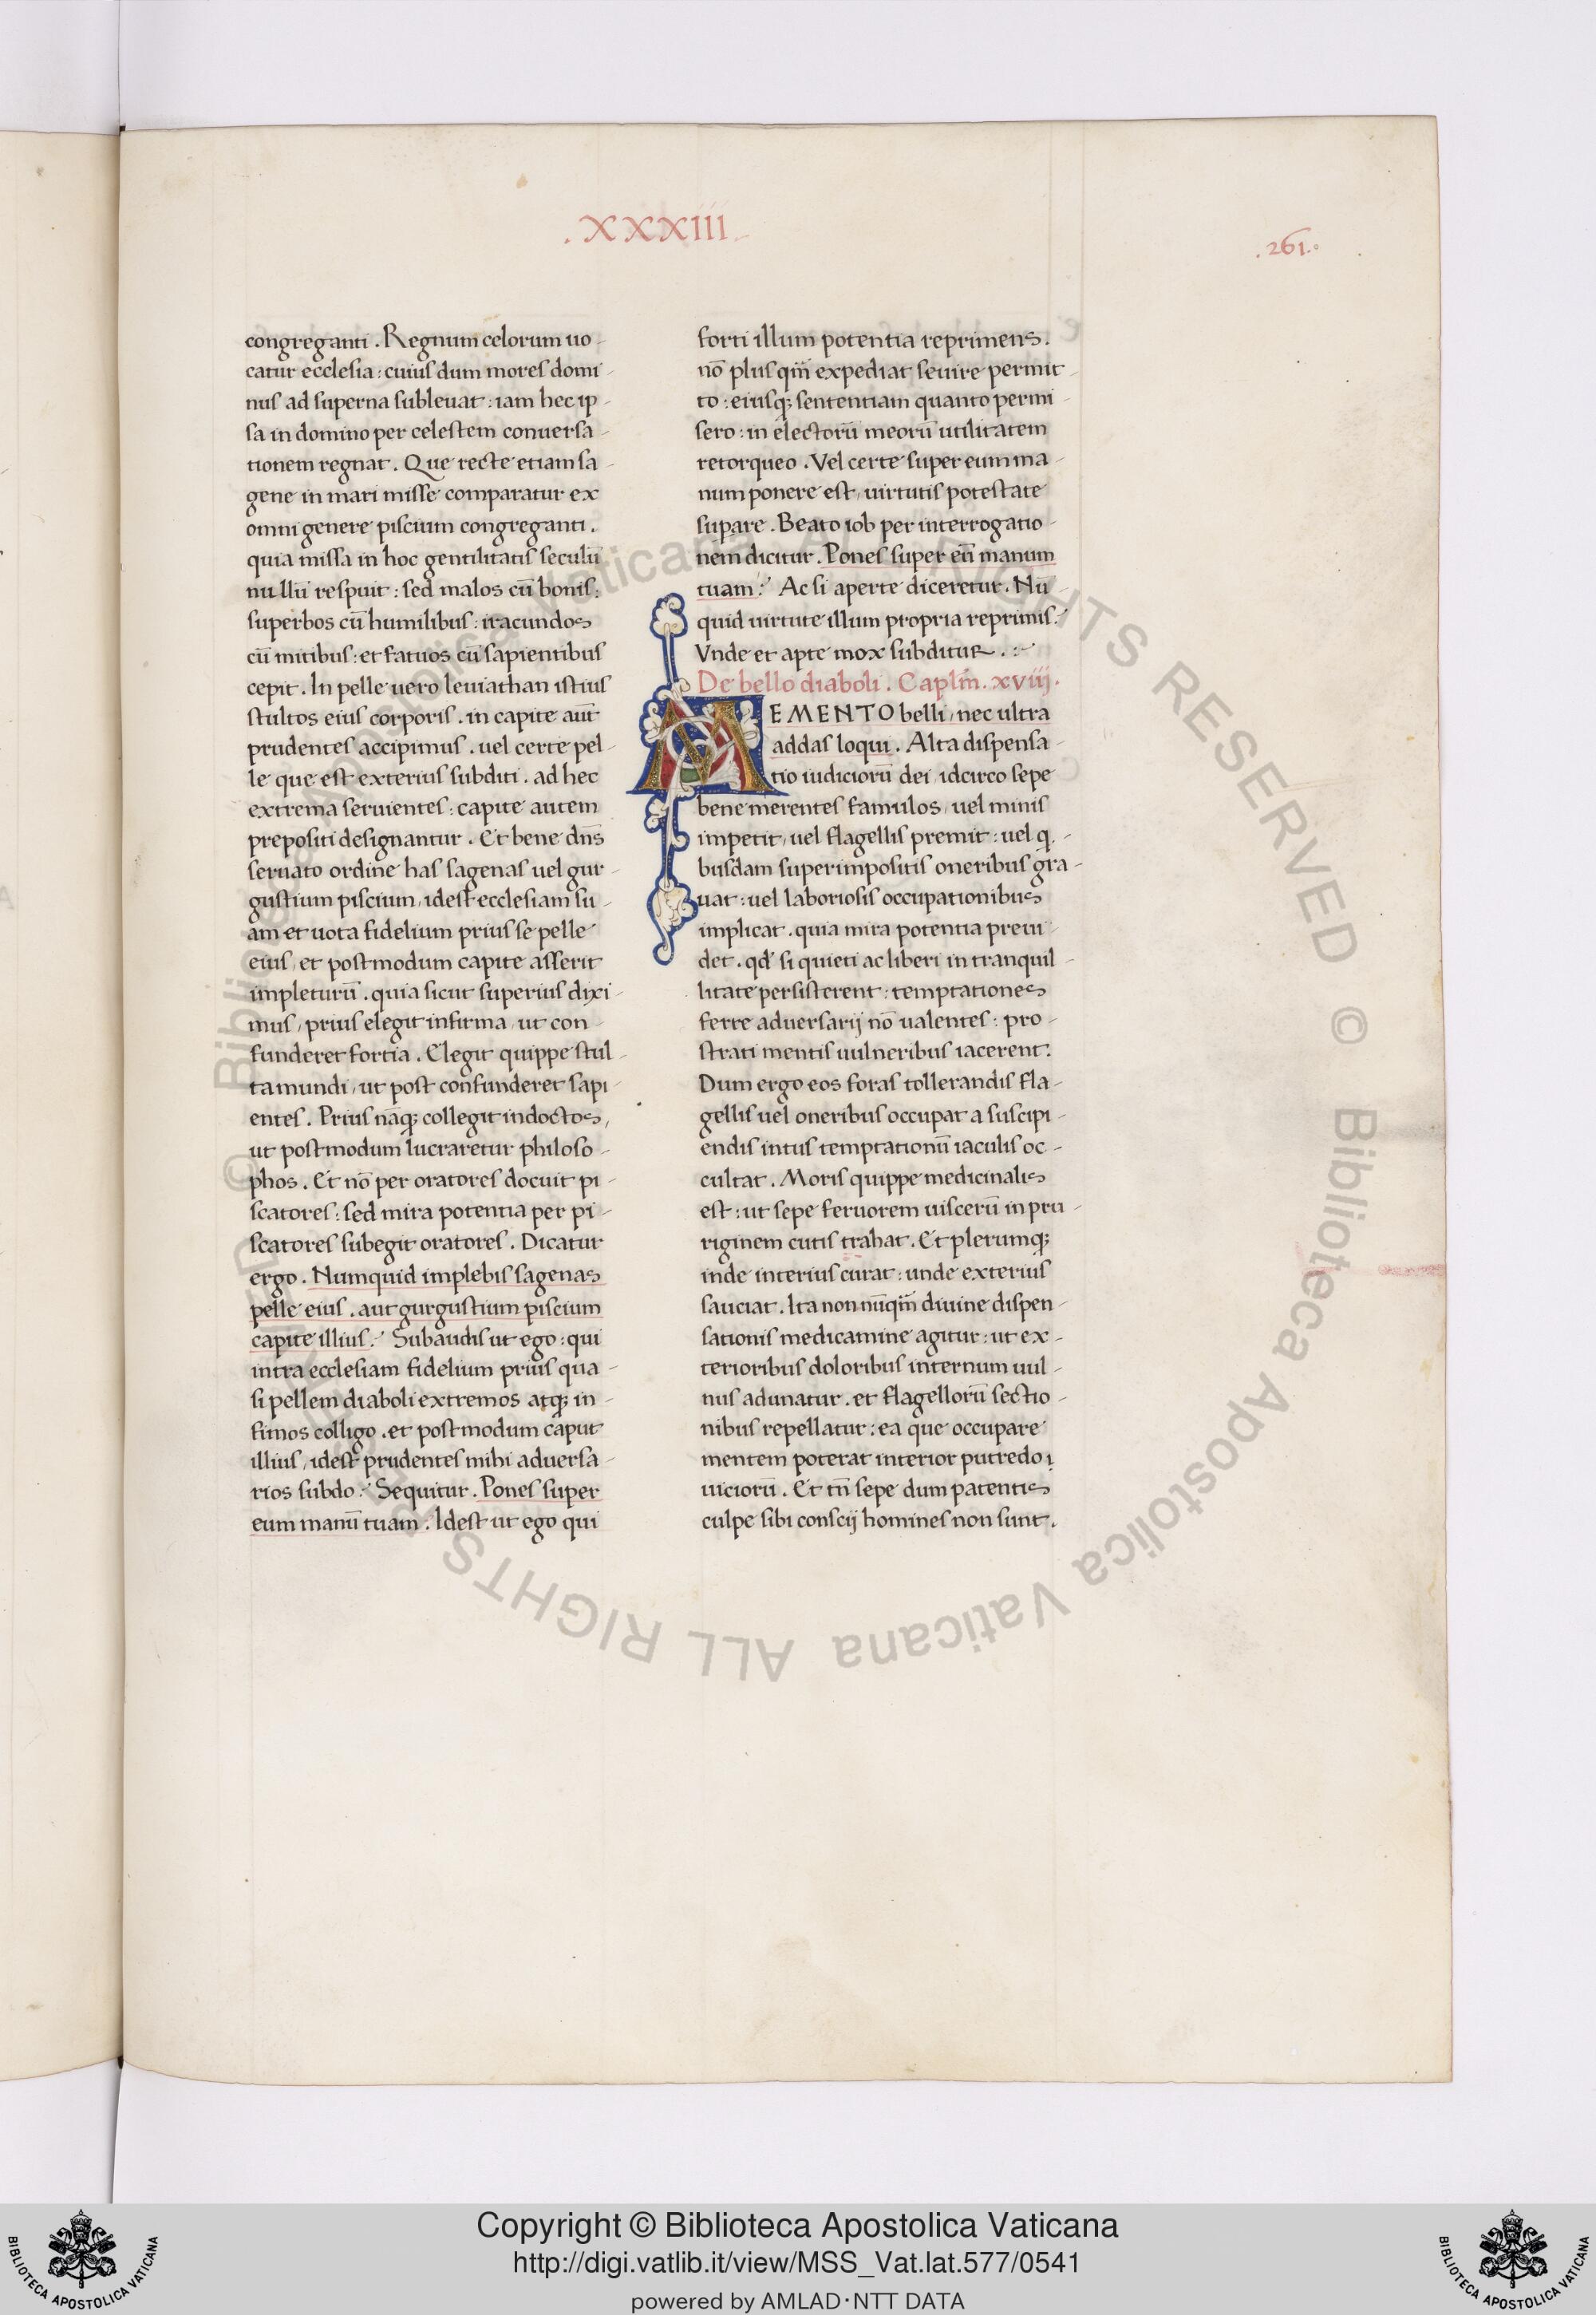 .XXXIII.
.261.
congreganti . Regnum celorum uo-
catur ecclesia : cuius dum mores domi-
nus ad superna subleuat : iam hec ip-
sa in domino per celestem conuersa-
tionem regnat . Que recte etiam sa-
gene in mari misse comparatur ex
omni genere piscium congreganti .
quia missa in hoc gentilitatis seculū
nullū respuit : sed malos cū bonis :
superbos cū humilibus : iracundos
cū mitibus : et fatuos cū sapientibus
cepit . In pelle uero leuiathan istius
stultos eius corporis . in capite aūt
prudentes accipimus . uel certe pel-
le que est exterius subditi . ad hec
extrema seruientes : capite autem
prepositi designantur . Et bene dn̄s
seruato ordine has sagenas uel gur-
gustium piscium , idest ecclesiam su-
am et uota fidelium prius se pelle
eius , et postmodum capite asserit
impleturū . quia sicut superius dixi-
mus , prius elegit infirma , ut con-
funderet fortia . Elegit quippe stul-
ta mundi , ut post confunderet sapi-
entes . Prius nāq; collegit indoctos ,
ut postmodum lucraretur philoso-
phos . Et nō per oratores docuit pi-
scatores : sed mira potentia per pi-
scatores subegit oratores . Dicatur
ergo . Numquid implebis sagenas
pelle eius . aut gurgustium piscium
capite illius ? Subaudis ut ego : qui
intra ecclesiam fidelium prius qua-
si pellem diaboli extremos atq; in-
fimos colligo . et postmodum caput
illius , idest prudentes mihi aduersa-
rios subdo ? Sequitur . Pones super
eum manū tuam . Idest ut ego qui
forti illum potentia reprimens .
nō plus qm̄ expediat seuire permit-
to : eiusq; sententiam quanto permi-
sero : in electorū meorū utilitatem
retorqueo . Vel certe super eum ma-
num ponere est , uirtutis potestate
supare . Beato iob per interrogatio-
nem dicitur . Pones super eū manum
tuam ? Ac si aperte diceretur . Nū-
quid uirtute illum propria reprimis ?
Vnde et apte mox subditur . :~
De bello diaboli . Caplm̄ . xviij .
MEMENTO belli , nec ultra
addas loqui . Alta dispensa-
tio iudiciorū dei , idcirco sepe
bene merentes famulos , uel minis
impetit , uel flagellis premit : uel q.-
busdam superimpositis oneribus gra-
uat : uel laboriosis occupationibus
implicat . quia mira potentia preui-
det . qd' si quieti ac liberi in tranquil-
litate persisterent : temptationes
ferre aduersarij nō ualentes : pro-
strati mentis uulneribus iacerent .
Dum ergo eos foras tollerandis fla-
gellis uel oneribus occupat a suscipi-
endis intus temptationū iaculis oc-
cultat . Moris quippe medicinalis
est : ut sepe feruorem uiscerū in pru-
riginem cutis trahat . Et plerumq;
inde interius curat : unde exterius
sauciat . Ita non nūqm̄ diuine dispen-
sationis medicamine agitur : ut ex-
terioribus doloribus internum uul-
nus adunatur . et flagellorū sectio-
nibus repellatur : ea que occupare
mentem poterat interior putredo
uiciorū . Et tn̄ sepe dum patentis
culpe sibi conscij homines non sunt .
© Biblioteca Apostolica Vaticana ALL RIGHTS RESERVED © Biblioteca Apostolica Vaticana ALL RIGHTS RESERVED
Copyright © Biblioteca Apostolica Vaticana
http://digi.vatlib.it/view/MSS_Vat.lat.577/0541
powered by AMLAD·NTT DATA
BIBLIOTECA APOSTOLICA VATICANA
BIBLIOTECA APOSTOLICA VATICANA